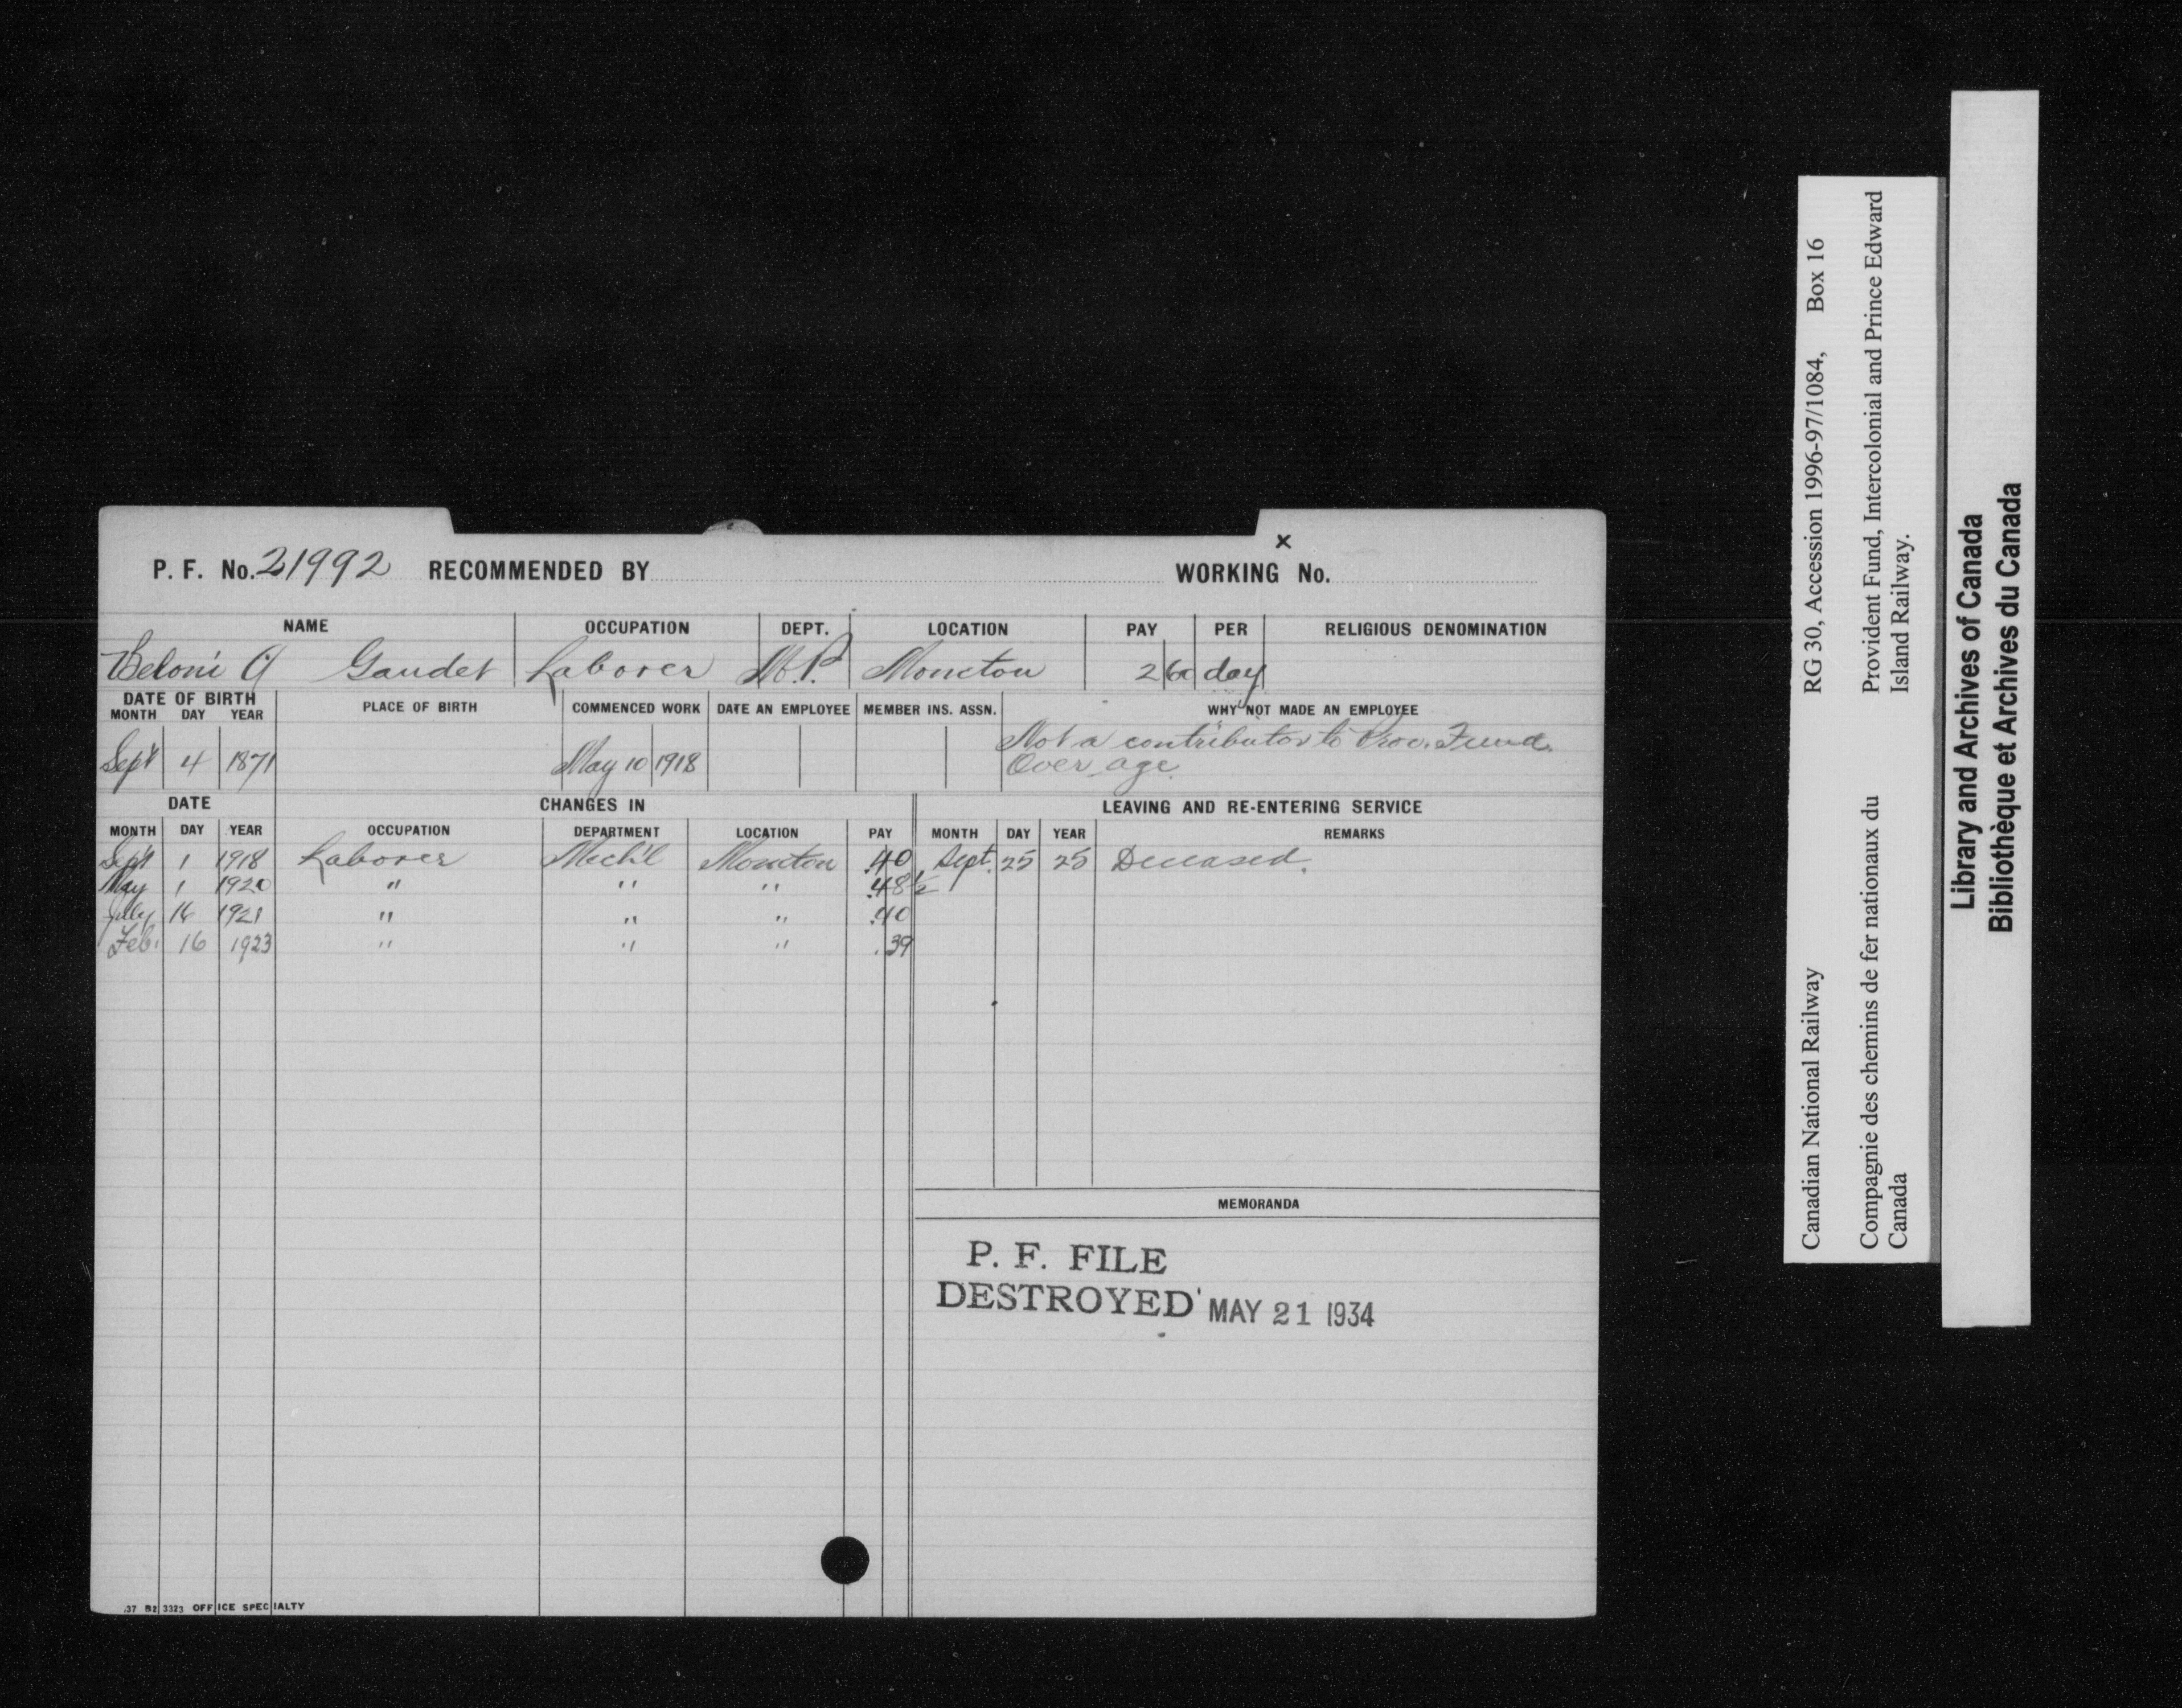 ×
P. F. No. 21992 RECOMMENDED BY WORKING No.
NAME OCCUPATION DEPT. LOCATION PAY PER RELIGIOUS DENOMINATION
Beloni A Gaudet Laborer M.P. Moncton 2 60 day
DATE OF BIRTH PLACE OF BIRTH COMMENCED WORK DATE AN EMPLOYEE MEMBER INS. ASSN. WHY NOT MADE AN EMPLOYEE
MONTH DAY YEAR
Not a contributor to Prov. Fund.
Sept 4 1871 May 10 1918 Over age.
DATE CHANGES IN LEAVING AND RE-ENTERING SERVICE
MONTH DAY YEAR OCCUPATION DEPARTMENT LOCATION PAY MONTH DAY YEAR REMARKS
Sept 1 1918 Laborer Mech'l Moncton .40 Sept. 25 25 Deceased.
May 1 1920 " " " .48½
July 16 1921 " " " .40
Feb. 16 1923 " " " .39
MEMORANDA
P. F. FILE
DESTROYED MAY 21 1934
37 B2 3323 OFFICE SPECIALTY
Canadian National Railway RG 30, Accession 1996-97/1084, Box 16
Compagnie des chemins de fer nationaux du Provident Fund, Intercolonial and Prince Edward
Canada Island Railway.
Library and Archives of Canada
Bibliothèque et Archives du Canada